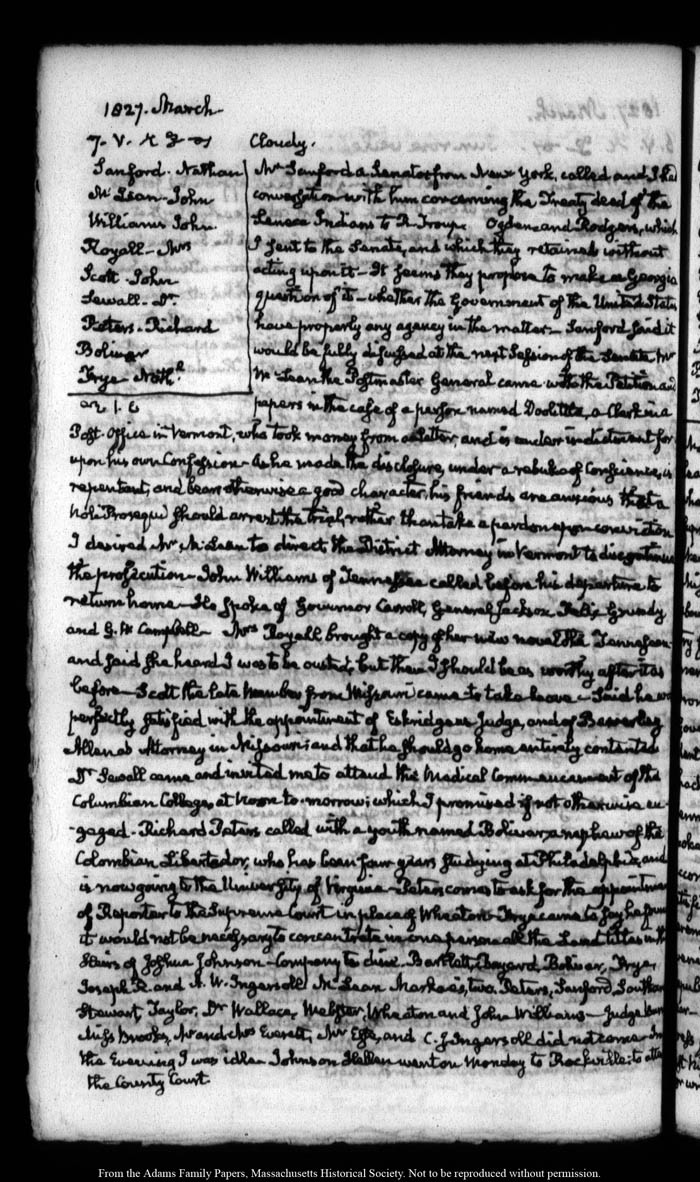 1827. March
7. V. Cloudy.
Sanford. Nathan
McLean. John
Williams John
Royall - Mrs
Scott John
Sewall - Dr.
Peters - Richard
Bolivar
Frye Nathl.
Mr Sanford a Senator from New York, called and I had
conversation with him concerning the Treaty deed of the
Seneca Indians to R. Troup, Ogden and Rodgers, which
I sent to the Senate, and which they retained without
acting upon it - It seems they propose to make a Georgia
question of it - whether the Government of the United States
have properly any agency in the matter - Sanford said it
would be fully discussed at the next Session of the Senate. Mr
McLean the Postmaster General came with the Petition and
papers in the case of a person named Doolittle, a Clerk in a
Post-Office in Vermont, who took money from a letter, and is under indictment for
upon his own Confession - As he made the disclosure, under a rebuke of Conscience, is
repentant, and bears otherwise a good character, his friends are anxious that a
Noli Prosequi should arrest the trial, rather than take a pardon upon conviction
I desired Mr McLean to direct the District Attorney in Vermont to discontinue
the prosecution - John Williams of Tennessee called before his departure to
return home - He spoke of Governor Carroll, General Jackson Felix Grundy
and G. W. Campbell - Mrs Royall brought a copy of her new novel the Tennessean
and said she heard I was to be ousted, but then I should be as worthy after it as
before - Scott the late member from Missouri came to take leave - Said he was
perfectly satisfied with the appointment of Eskridge as Judge, and of Beverley
Allen as Attorney in Missouri; and that he should go home entirely contented
Dr Sewall came and invited me to attend the Medical Commencement of the
Columbian College, at Noon to-morrow; which I promised if not otherwise en-
-gaged - Richard Peters called with a youth named Bolivar, a nephew of the
Colombian Libertador, who has been four years studying at Philadelphia, and
is now going to the University of Virginia - Peters comes to ask for the appointment
of Reporter to the Supreme Court in place of Wheaton - Frye came to say he found
it would not be necessary to concentrate in one person all the Land titles in the
Heirs of Joshua Johnson - Company to dine. Bartlett, Bayard, Bolivar, Frye,
Joseph R. and A. W. Ingersoll McLean Markoe, two Peters, Sanford, Southard
Stewart, Taylor, Dr Wallace, Webster, Wheaton and John Williams - Judge
Miss Brooks, Mr and Mrs Everett, and C. J. Ingersoll did not come - In
the Evening I was idle - Johnson Hellen went on Monday to Rockville: to attend
the County Court.
From the Adams Family Papers, Massachusetts Historical Society. Not to be reproduced without permission.